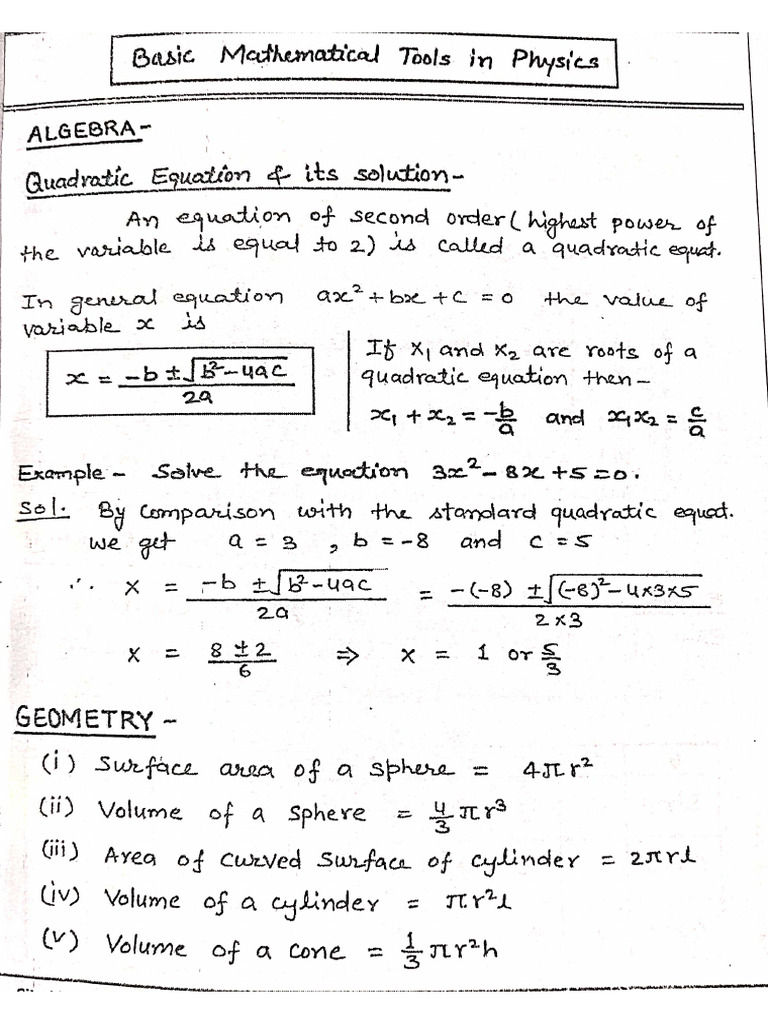 Basic Mathematical Tools in Physics
ALGEBRA-
Quadratic Equation & its solution-
An equation of second order (highest power of
the variable is equal to 2) is called a quadratic equat.
In general equation ax² + bx + c = 0 the value of
variable x is
x = (-b ± √(b² - 4ac)) / 2a
If x₁ and x₂ are roots of a
quadratic equation then-
x₁ + x₂ = -b/a and x₁x₂ = c/a
Example- Solve the equation 3x² - 8x + 5 = 0.
Sol. By comparison with the standard quadratic equat.
we get a = 3 , b = -8 and c = 5
∴ x = (-b ± √(b² - 4ac)) / 2a = (-(-8) ± √((-8)² - 4×3×5)) / (2×3)
x = (8 ± 2) / 6 ⇒ x = 1 or 5/3
GEOMETRY -
(i) Surface area of a sphere = 4πr²
(ii) Volume of a sphere = 4/3 πr³
(iii) Area of curved surface of cylinder = 2πrl
(iv) Volume of a cylinder = πr²l
(v) Volume of a cone = 1/3 πr²h